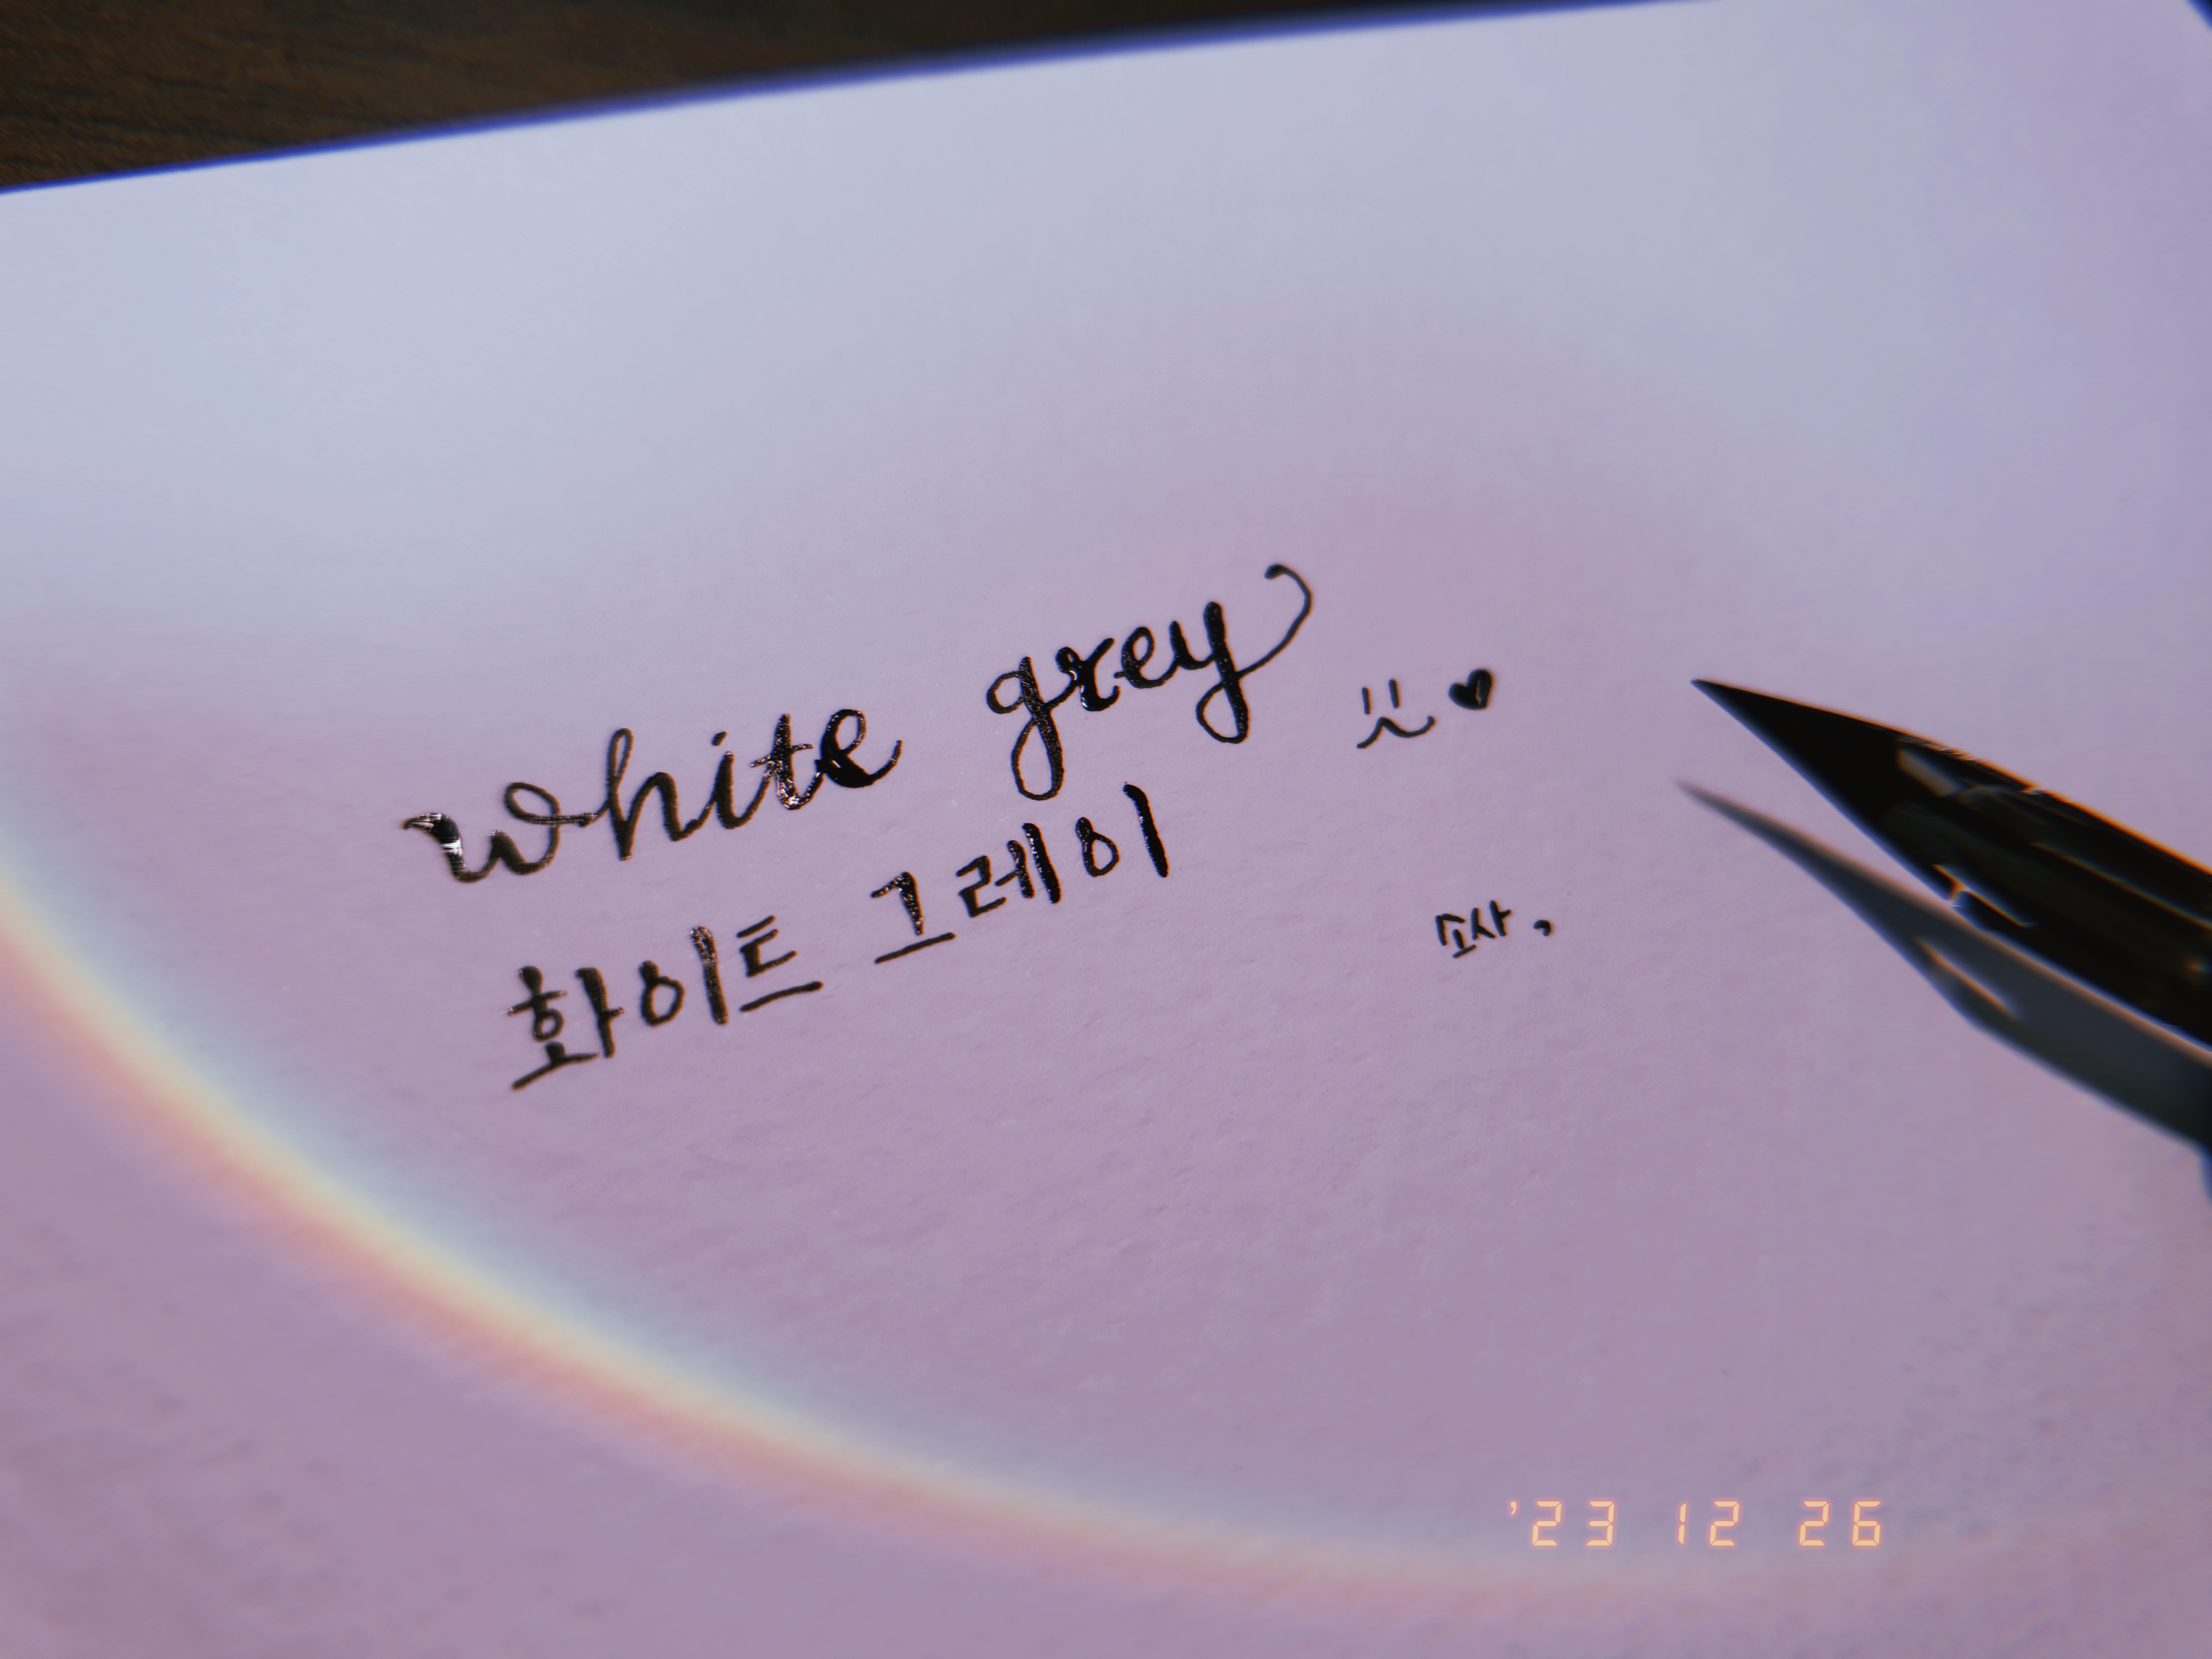 white grey
화이트 그레이
소사,
'23 12 26